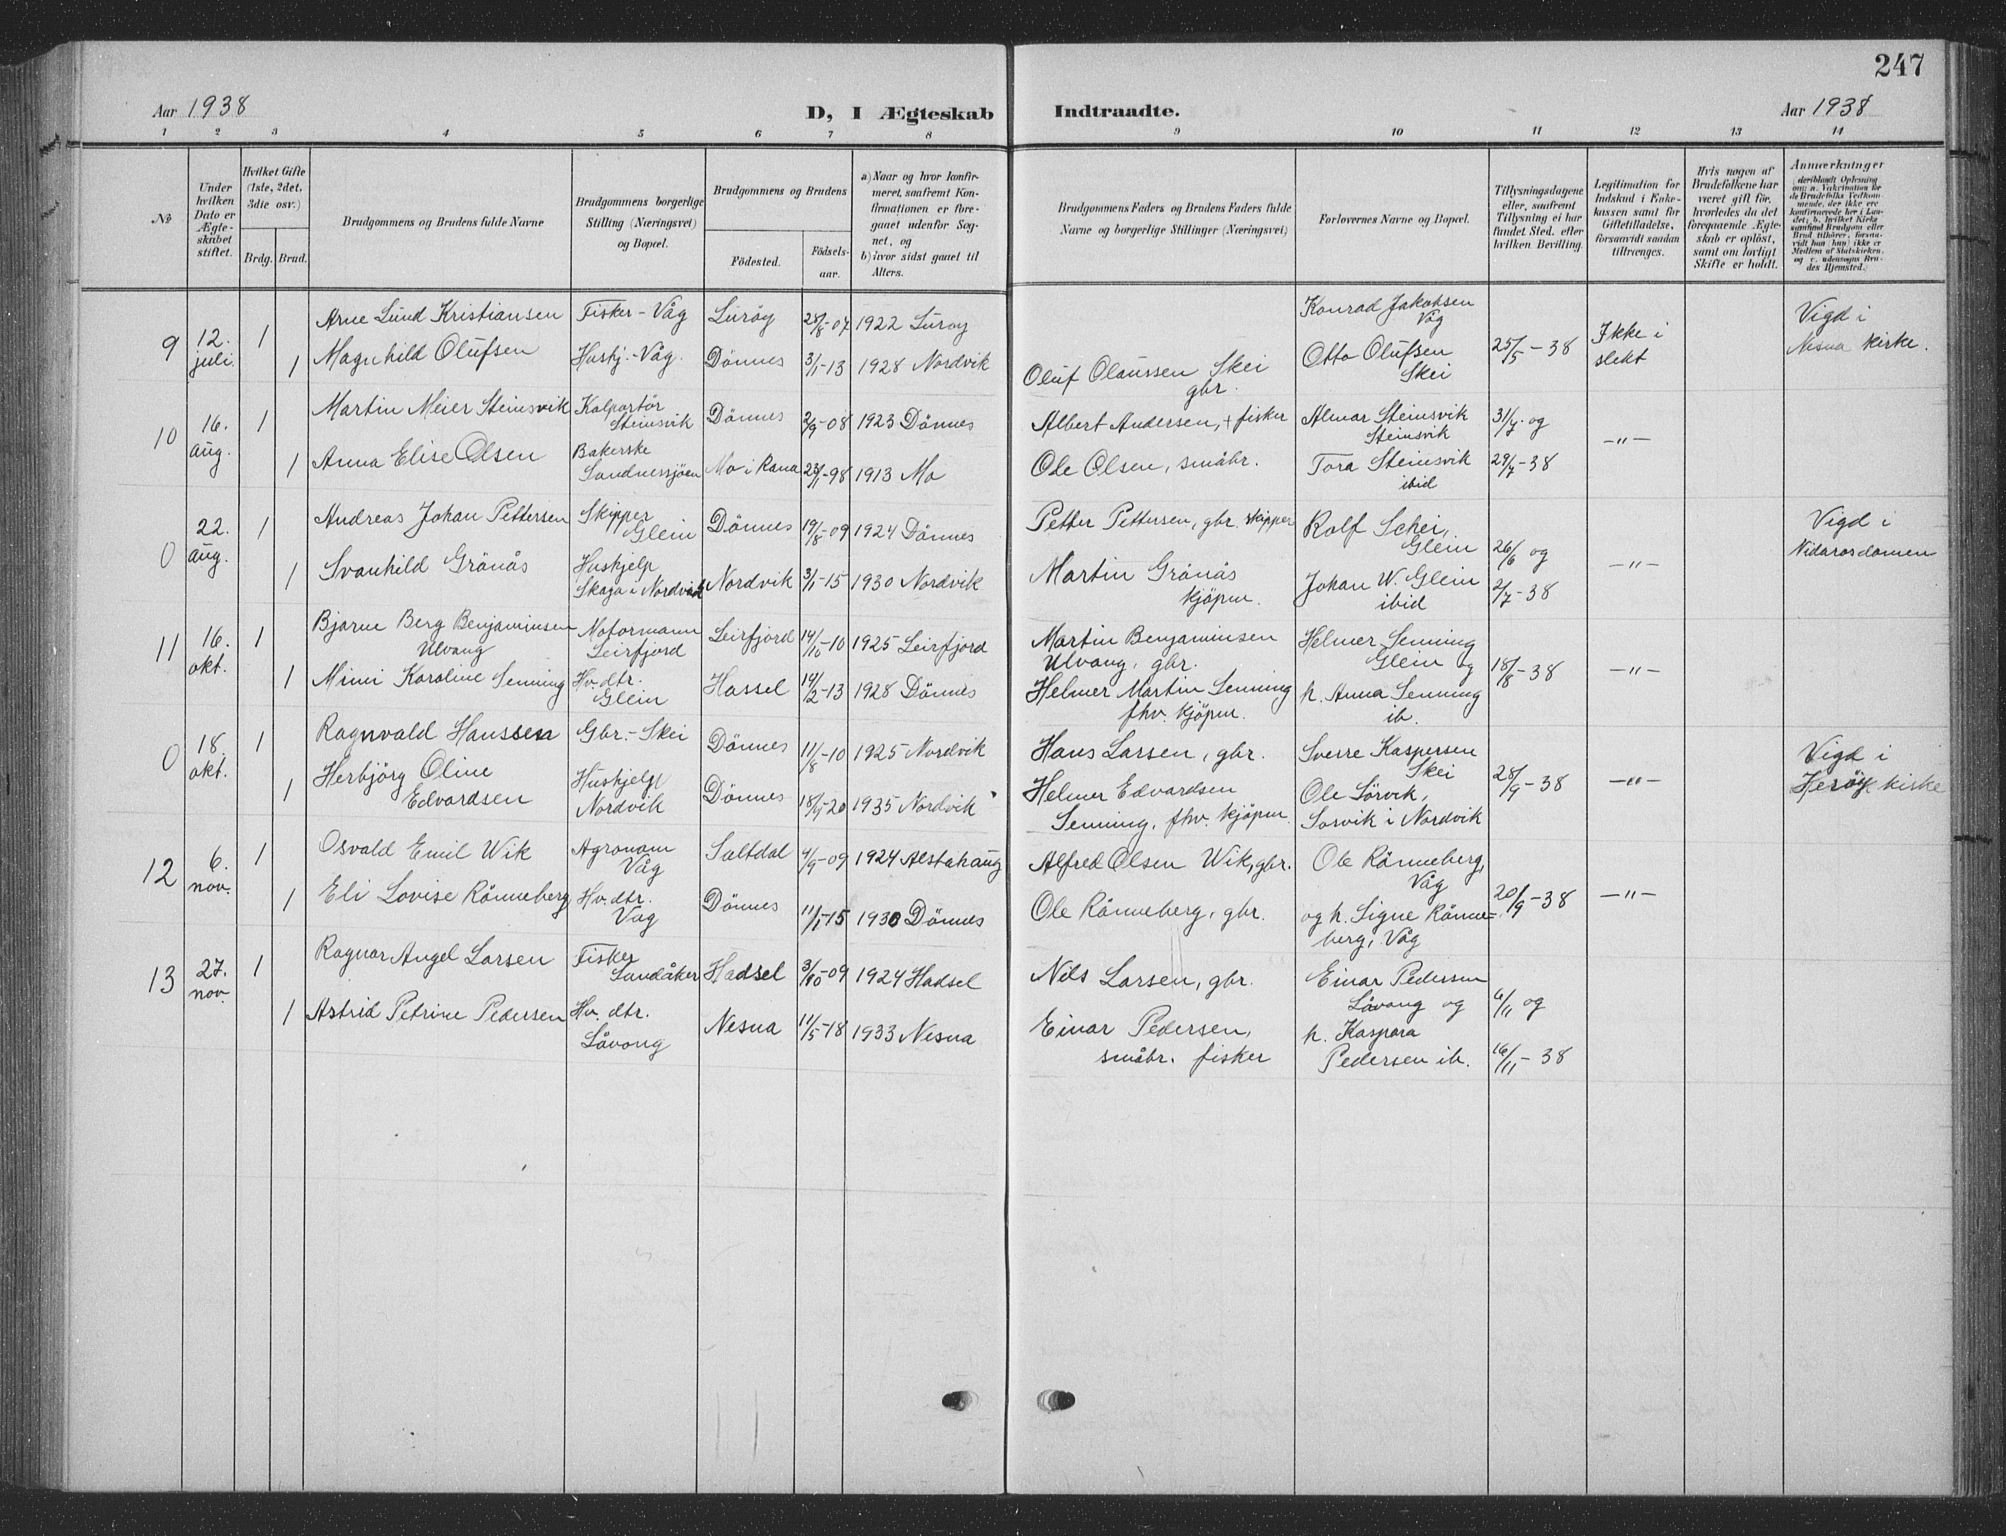 247
Aar 1938
D, I Ægteskab
Indtraadte.
Aar 1938
1 2 3 4 5 6 7 8 9 10 11 12 13 14
№
Under hvilken Dato er Ægteskabet stiftet.
Hvilket Gifte (1ste, 2det, 3die osv.)
Brdg. Brud.
Brudgommens og Brudens fulde Navne
Brudgommens borgerlige Stilling (Næringsvei) og Bopæl.
Brudgommens og Brudens
Födested.
Födselsaar.
a) Naar og hvor konfirmeret, saafremt Konfirmationen er foregaaet udenfor Sognet, og
b) hvor sidst gaaet til Alters.
Brudgommens Faders og Brudens Faders fulde Navne og borgerlige Stillinger (Næringsvei)
Forlovernes Navne og Bopæl.
Tillysningsdagene eller, saafremt Tillysning ei har fundet Sted, efter hvilken Bevilling.
Legitimation for Indskud i Enkekassen samt for Giftetilladelse, forsaavidt saadan tiltrænges.
Hvis nogen af Brudefolkene har været gift för, hvorledes da det foregaaende Ægteskab er oplöst, samt om lovligt Skifte er holdt.
Anmærkninger
9 12. juli 1 Arne Lund Kristiansen Fisker - Våg Luröy 28/8-07 1922 Luröy Konrad Jakobsen Våg
1 Magnhild Olufsen Hushj. - Våg. Dönnes 3/1-13 1928 Nordvik Oluf Olaussen Skei gbr. Otto Olufsen Skei 25/5 - 38 Ikke i slekt Vigd i Nesna kirke.
10 16. aug. 1 Martin Meier Steinsvik Kolportör Steinsvik Dönnes 2/9-08 1923 Dönnes Albert Andersen, + fisker Almar Steinsvik Steinsvik 31/7. og
1 Anna Elise Olsen Bakerske Sandnessjöen Mo i Rana 23/1-98 1913 Mo Ole Olsen, småbr. Tora Steinsvik ibid 29/7-38 -"-
0 22. aug. 1 Andreas Johan Pettersen Skipper Glein Dönnes 19/8-09 1924 Dönnes Petter Pettersen, gbr. skipper Rolf Schei, Glein 26/6 og Vigd i Nidarosdomen
1 Svanhild Grönås Hushjelp Skaga i Nordvik Nordvik 3/1-15 1930 Nordvik Martin Grönås kjöpm. Johan W. Glein ibid 2/7-38 -"-
11 16. okt. 1 Bjarne Berg Benjaminsen Ulvang Motormann Leirfjord Leirfjord 14/10-10 1925 Leirfjord Martin Benjaminsen Ulvang, gbr. Helmer Senning Glein og
1 Mimi Karoline Senning Hv. dtr. Glein Hassel 14/2-13 1928 Dönnes Helmer Martin Senning fhv. kjöpm. h. Anna Senning ib. 18/8-38 -"-
0 18. okt. 1 Ragnvald Hanssen Gbr. - Skei Dönnes 11/8-10 1925 Nordvik Hans Larsen, gbr. Sverre Kaspersen Skei Vigd i Heröy kirke
1 Herbjörg Oline Edvardsen Hushjelp Nordvik Dönnes 1935 Nordvik Helmer Edvardsen Senning, fhv. kjöpm. Ole Sörvik, Sörvik i Nordvik 28/9-38 -"-
12 6. nov. 1 Osvald Emil Wik Agronom Våg Saltdal 4/9-09 1924 Alstahaug Alfred Olsen Wik, gbr. Ole Rönneberg, Våg
1 Eli Lovise Rönneberg Hv. dtr. Våg Dönnes 11/1-15 1930 Dönnes Ole Rönneberg, gbr. og h. Signe Rönneberg, Våg 20/9-38 -"-
13 27. nov. 1 Ragnar Angel Larsen Fisker Sandåker Hadsel 3/10-09 1924 Hadsel Nils Larsen, gbr. Einar Pedersen Låvong og 6/11 og
1 Astrid Petrine Pedersen Hv. dtr. Låvong Nesna 11/5-18 1933 Nesna Einar Pedersen, småbr. fisker h. Kaspara Pedersen ib. 16/11-38